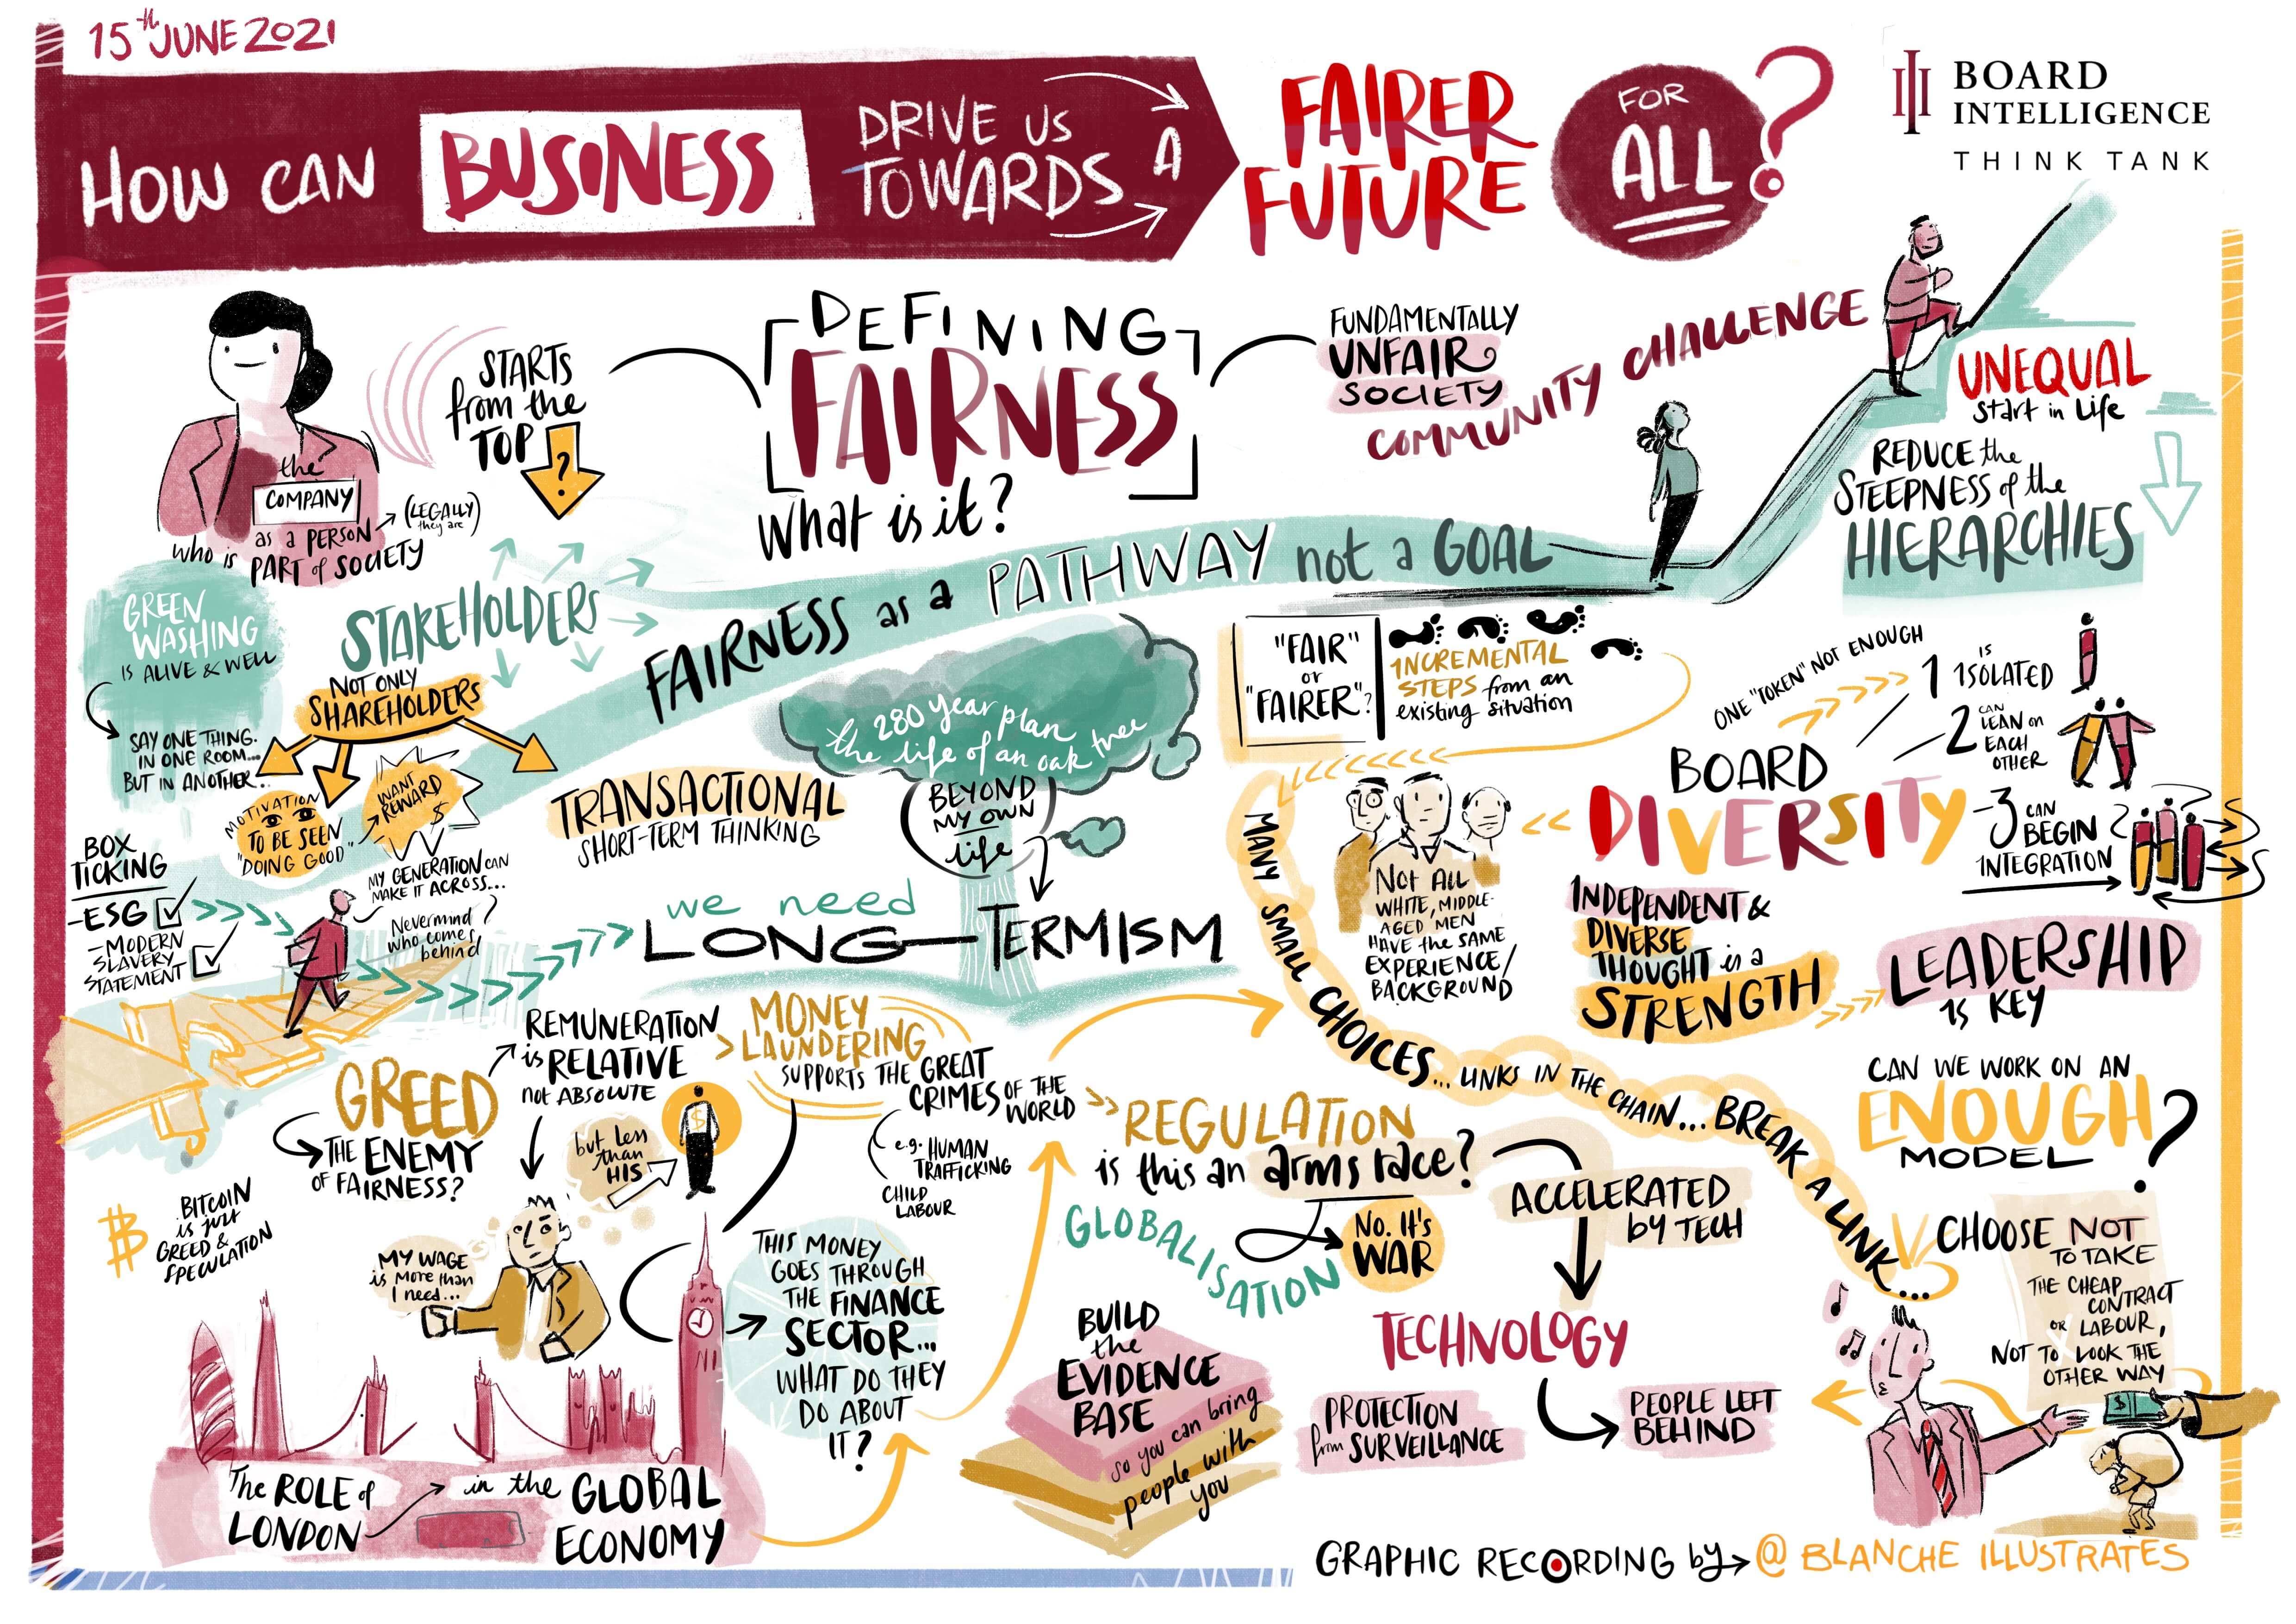 15th JUNE 2021
HOW CAN
BUSINESS
DRIVE US
TOWARDS
A
FAIRER
FUTURE
FOR
ALL
?
BOARD
INTELLIGENCE
THINK TANK
STARTS
from the
TOP
?
the
COMPANY
as a PERSON
(LEGALLY
they are)
who is
PART of SOCIETY
DEFINING
FAIRNESS
What is it?
FUNDAMENTALLY
UNFAIR
SOCIETY
COMMUNITY CHALLENGE
UNEQUAL
Start in Life
REDUCE the
STEEPNESS of the
HIERARCHIES
FAIRNESS as a PATHWAY not a GOAL
GREEN
WASHING
IS ALIVE & WELL
SAY ONE THING
IN ONE ROOM...
BUT IN ANOTHER...
STAKEHOLDERS
NOT ONLY
SHAREHOLDERS
MOTIVATION
TO BE SEEN
"DOING GOOD"
WANT
REWARD
$
BOX
TICKING
-ESG
-MODERN
SLAVERY
STATEMENT
MY GENERATION CAN
MAKE IT ACROSS...
Nevermind
who comes
behind
TRANSACTIONAL
SHORT-TERM THINKING
280 year plan
the life of an oak tree
BEYOND
MY OWN
life
we need
LONG-TERMISM
"FAIR"
or
"FAIRER"?
INCREMENTAL
STEPS from an
existing situation
ONE "TOKEN" NOT ENOUGH
1 IS
ISOLATED
-2 CAN
LEAN on
EACH
OTHER
-3 CAN
BEGIN
INTEGRATION
BOARD
DIVERSITY
NOT ALL
WHITE, MIDDLE-
AGED MEN
HAVE the SAME
EXPERIENCE/
BACKGROUND
INDEPENDENT &
DIVERSE
THOUGHT is a
STRENGTH
LEADERSHIP
IS KEY
MANY SMALL CHOICES... LINKS IN THE CHAIN... BREAK A LINK...
GREED
THE ENEMY
OF FAIRNESS?
REMUNERATION
is RELATIVE
not ABSOLUTE
MONEY
LAUNDERING
SUPPORTS THE GREAT
CRIMES OF THE
WORLD
e.g. HUMAN
TRAFFICKING
CHILD
LABOUR
BITCOIN
is just
GREED &
SPECULATION
MY WAGE
is more than
I need...
but less
than
HIS
$
THIS MONEY
GOES THROUGH
THE FINANCE
SECTOR...
WHAT DO THEY
DO ABOUT
IT?
The ROLE of
LONDON
in the GLOBAL
ECONOMY
REGULATION
is this an arms race?
NO. It's
WAR
GLOBALISATION
ACCELERATED
by TECH
BUILD
the
EVIDENCE
BASE
so you can bring
people with
you
TECHNOLOGY
PROTECTION
from SURVEILLANCE
PEOPLE LEFT
BEHIND
CAN WE WORK ON AN
ENOUGH
MODEL
?
CHOOSE NOT
TO TAKE
THE CHEAP
CONTRACT
OR LABOUR,
NOT TO LOOK THE
OTHER WAY
$
GRAPHIC RECORDING by @ BLANCHE ILLUSTRATES